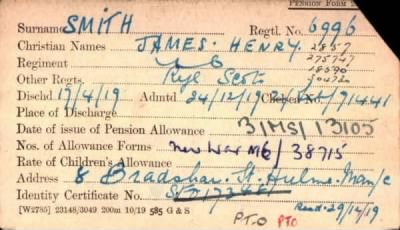 PENSION FORM 2
Surname SMITH Regtl. No. 6996
Christian Names JAMES. HENRY. 2857
Regiment 275747
18590
Other Regts. Ryl Scots 30472
Dischd 17/4/19 Admtd 24/12/19 Chelsea No. 71441
Place of Discharge
Date of issue of Pension Allowance 3/MS/13105
Nos. of Allowance Forms new War M6/38715
Rate of Children's Allowance
Address 8 Bradshaw St. Hulme. Man/c
Identity Certificate No. 
[W2785] 23148/3049 200m 10/19 585 G & S
P.T.O PTO Read. 29/12/19